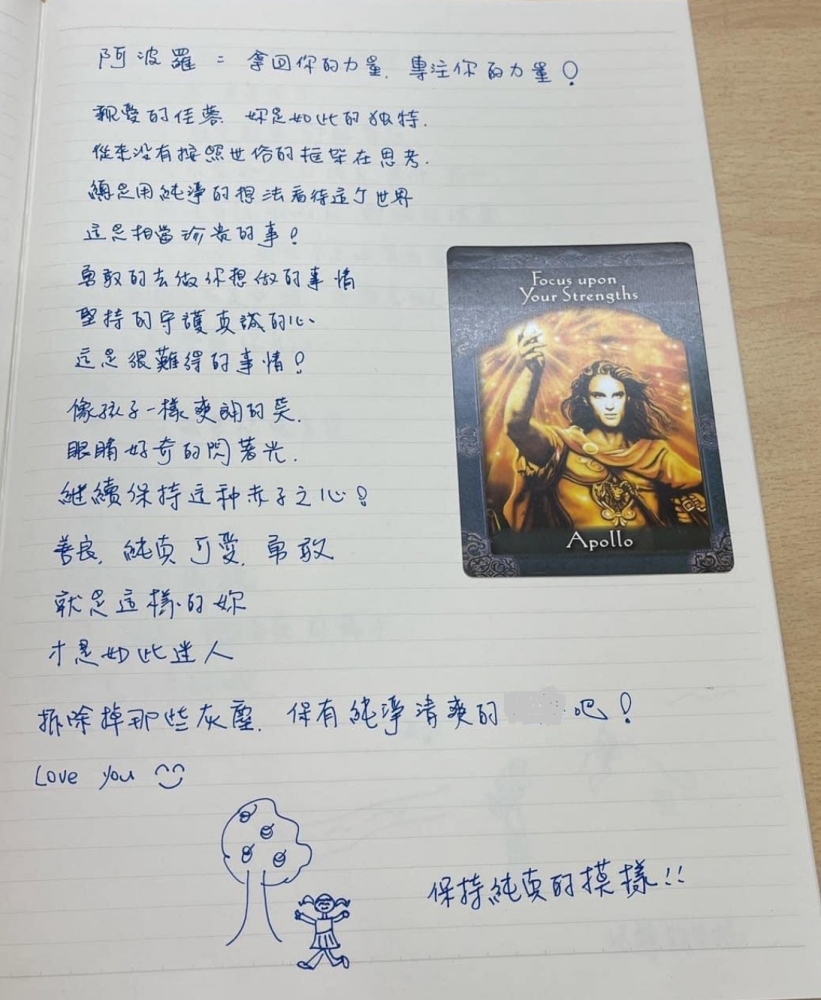 阿波羅：拿回你的力量，專注你的力量！
親愛的佳蓉 妳是如此的独特，
從來没有按照世俗的框架在思考，
總是用純淨的想法看待這个世界
這是相當珍贵的事！
勇敢的去做你想做的事情
堅持的守護真誠的心
這是很難得的事情！
像孩子一樣爽朗的笑，
眼睛好奇的閃著光，
継續保持這种赤子之心！
善良，純真可愛，勇敢
就是這樣的妳
才是如此迷人
拆除掉那些灰塵，保有純淨清爽的 吧！
Love you
保持純真的摸樣!!
Focus upon
Your Strengths
Apollo